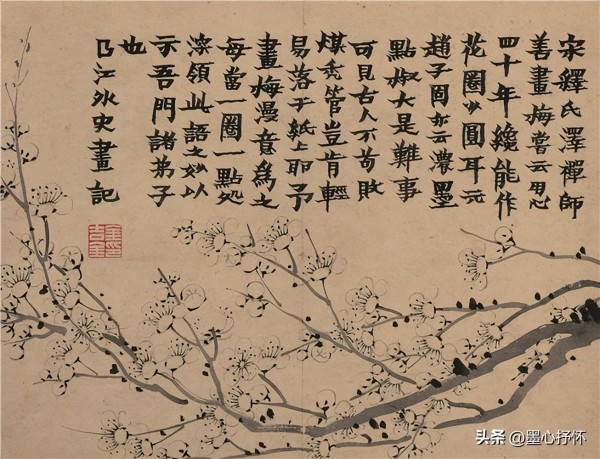 宋釋氏澤禪師
善畫梅嘗云用心
四十年纔能作
花圈少圓耳元
趙子固亦云濃墨
點椒大是難事
可見古人不苟敗
煤禿管豈肯輕
易落于紙上耶予
畫梅漫意為之
每當一圈一點処
深領此語之妙以
示吾門諸弟子
也
曲江外史畫記
头条 @墨心抒怀